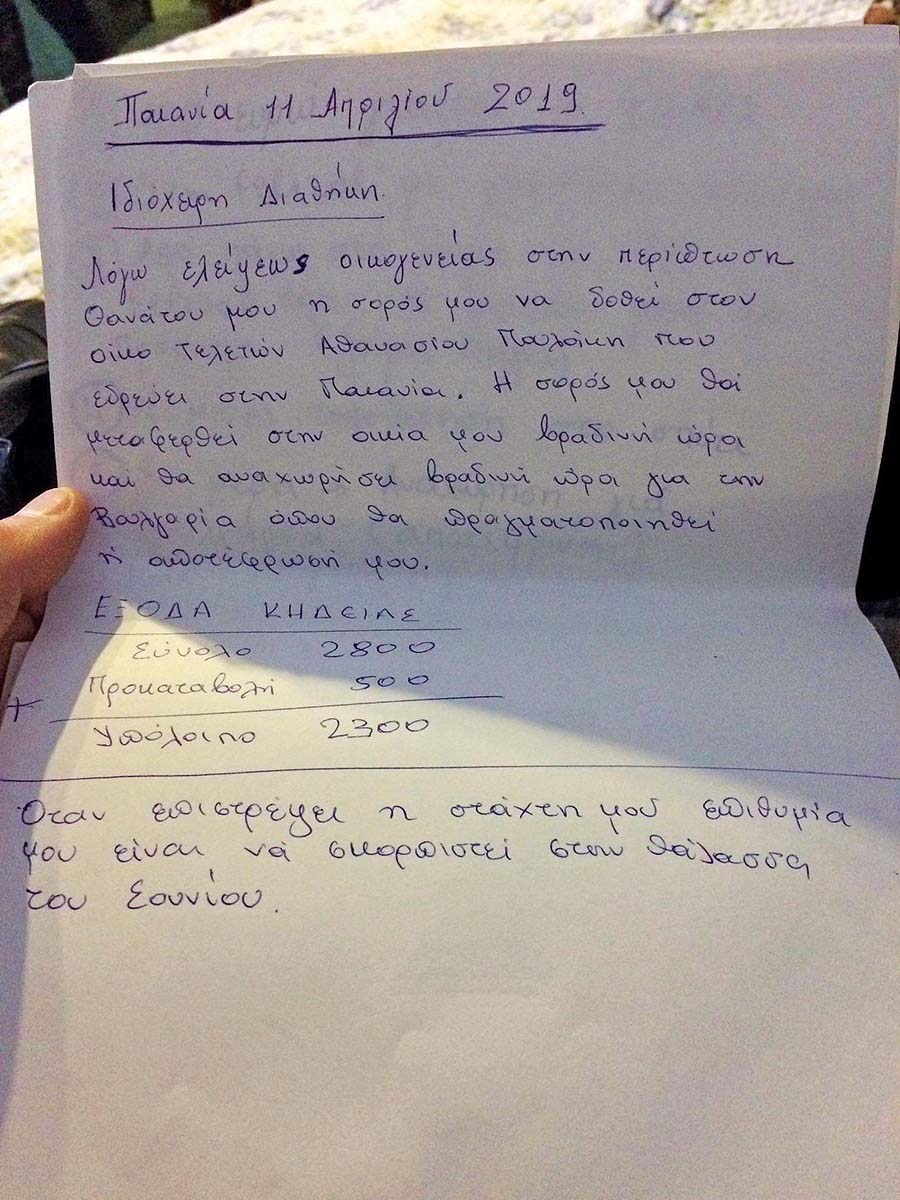 Παιανία 11 Απριλίου 2019.
Ιδιόχειρη Διαθήκη.
Λόγω ελείψεως οικογενείας στην περίπτωση
Θανάτου μου η σορός μου να δοθεί στον
οίκο Τελετών Αθανασίου Παυλάκη που
εδρεύει στην Παιανία. Η σορός μου θα
μεταφερθεί στην οικία μου βραδινή ώρα
και θα αναχωρήσει βραδινή ώρα για την
Βουλγαρία όπου θα πραγματοποιηθεί
ή αποτέφρωσή μου.
ΕΞΟΔΑ ΚΗΔΕΙΑΣ
Σύνολο 2800
Προκαταβολή 500
+
Υπόλοιπο 2300
Όταν επιστρέψει η στάχτη μού επιθυμία
μου είναι νά σκορπιστεί στην θάλασσα
του Σουνίου.